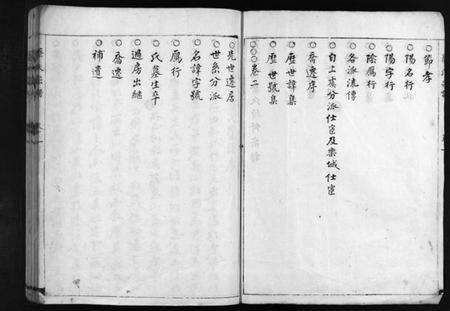 ○節孝
○陽名行
○陽字行
○陰鳳行
○各派流傳
○自上虞分派仕宦及樂城仕宦
○喬遷序
○歷世諱集
○歷世號集
○○○卷二
○先世遷居
○世系分派
○名諱字號
○鳳行
○氏墓生卒
○過房出繼
○喬遷
○補遺